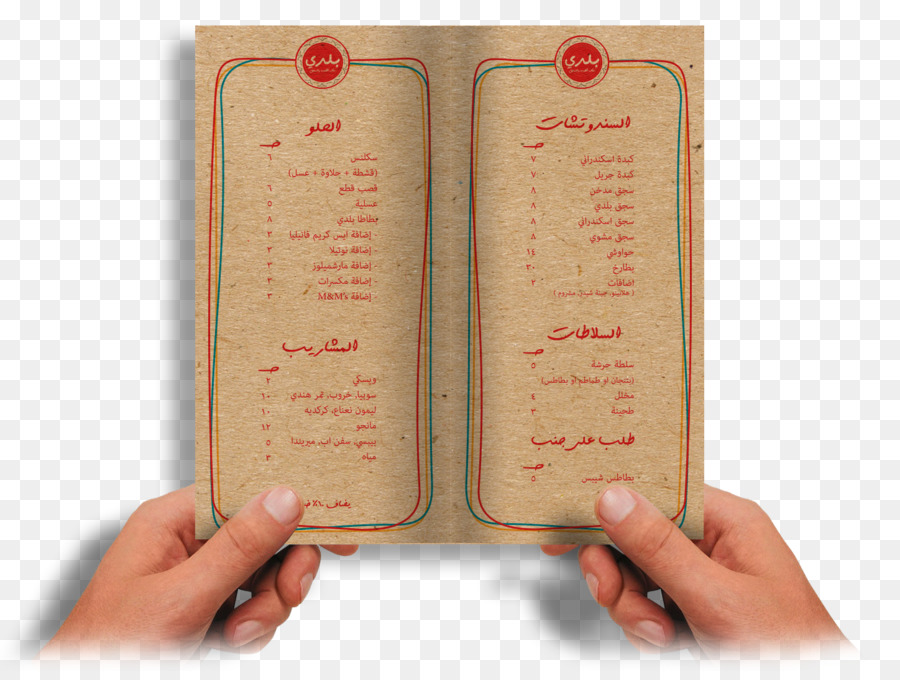 بلدي
السندوتشات
جـ
كبدة اسكندراني ٧
كبدة جريل ٧
سجق مدخن ٨
سجق بلدي ٨
سجق اسكندراني ٨
سجق مشوي ٨
حواوشي ١٤
بطارخ ٢٠
إضافات ٢
( هلابينو، جبنة شيدر، مشروم )
السلاطات
جـ
سلطة حرشة ٥
(بتنجان او طماطم او بطاطس)
مخلل ٤
طحينة ٣
طلب على جنب
جـ
بطاطس شيبس ٥
بلدي
الحلو
جـ
سكلنس ٦
(قشطة + حلاوة + عسل)
قصب قطع ٦
عسلية ٥
بطاطا بلدي ٨
- إضافة ايس كريم فانيليا ٣
- إضافة نوتيلا ٣
- إضافة مارشميلوز ٣
- إضافة مكسرات ٣
- إضافة M&M's ٣
المشاريب
جـ
ويسكي ٢
سوبيا، خروب، تمر هندي ١٠
ليمون نعناع، كركديه ١٠
مانجو ١٢
بيبسي، سفن اب، ميريندا ٥
مياه ٣
يضاف ١٠٪